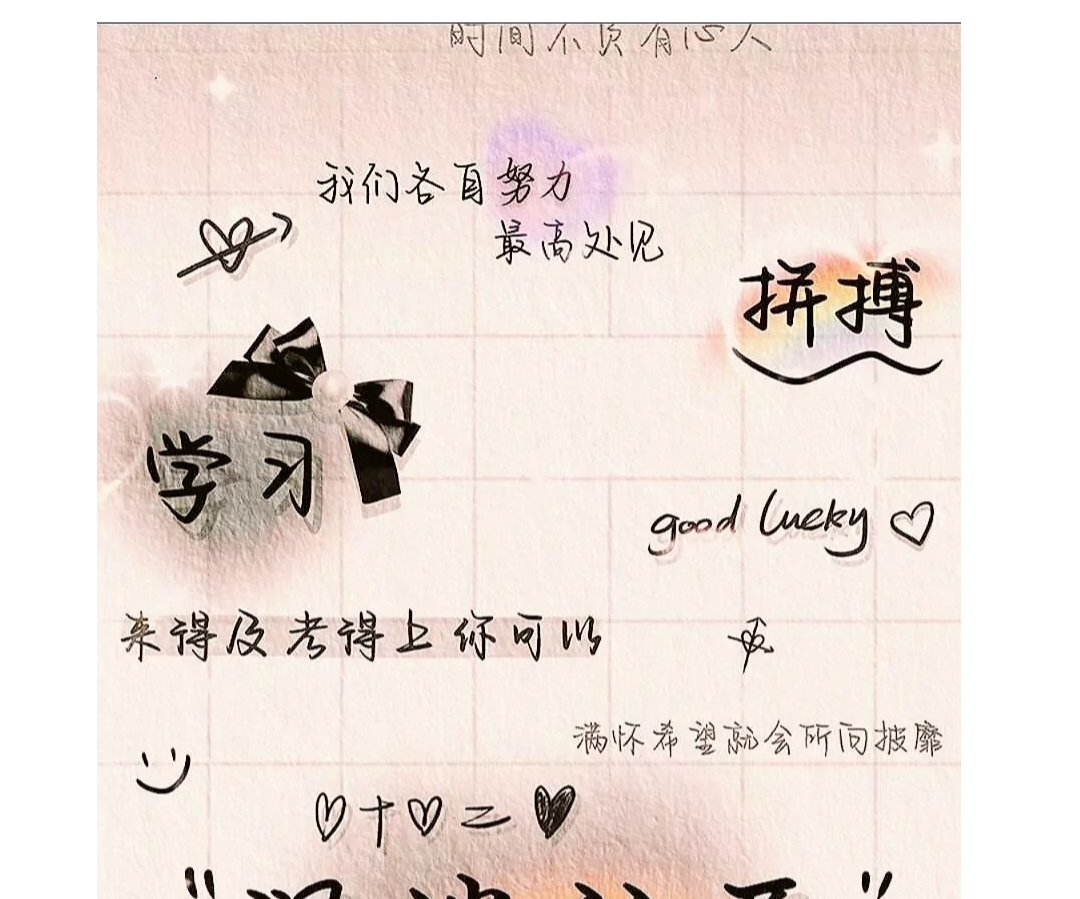 时间不负有心人
我们各自努力
最高处见
拼搏
学习
good lucky
来得及考得上你可以
满怀希望就会所向披靡